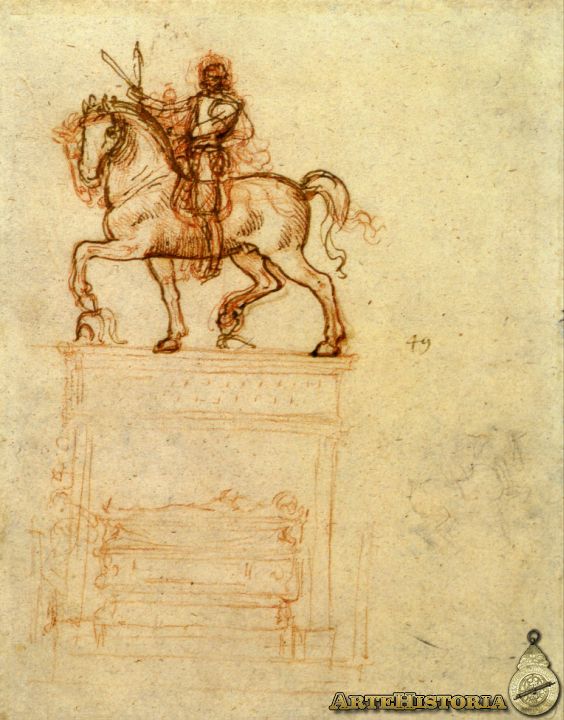 49
ArteHistoria